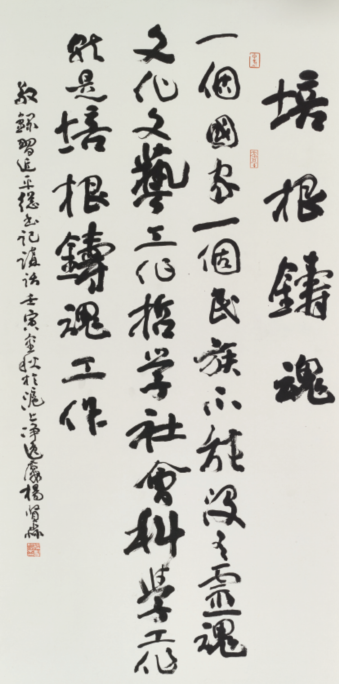 培根鑄魂
一個國家一個民族不能沒有靈魂
文化文藝工作哲学社會科學工作
就是培根鑄魂工作
敬錄習近平總書記講話壬寅金秋於滬上净逸齋楊